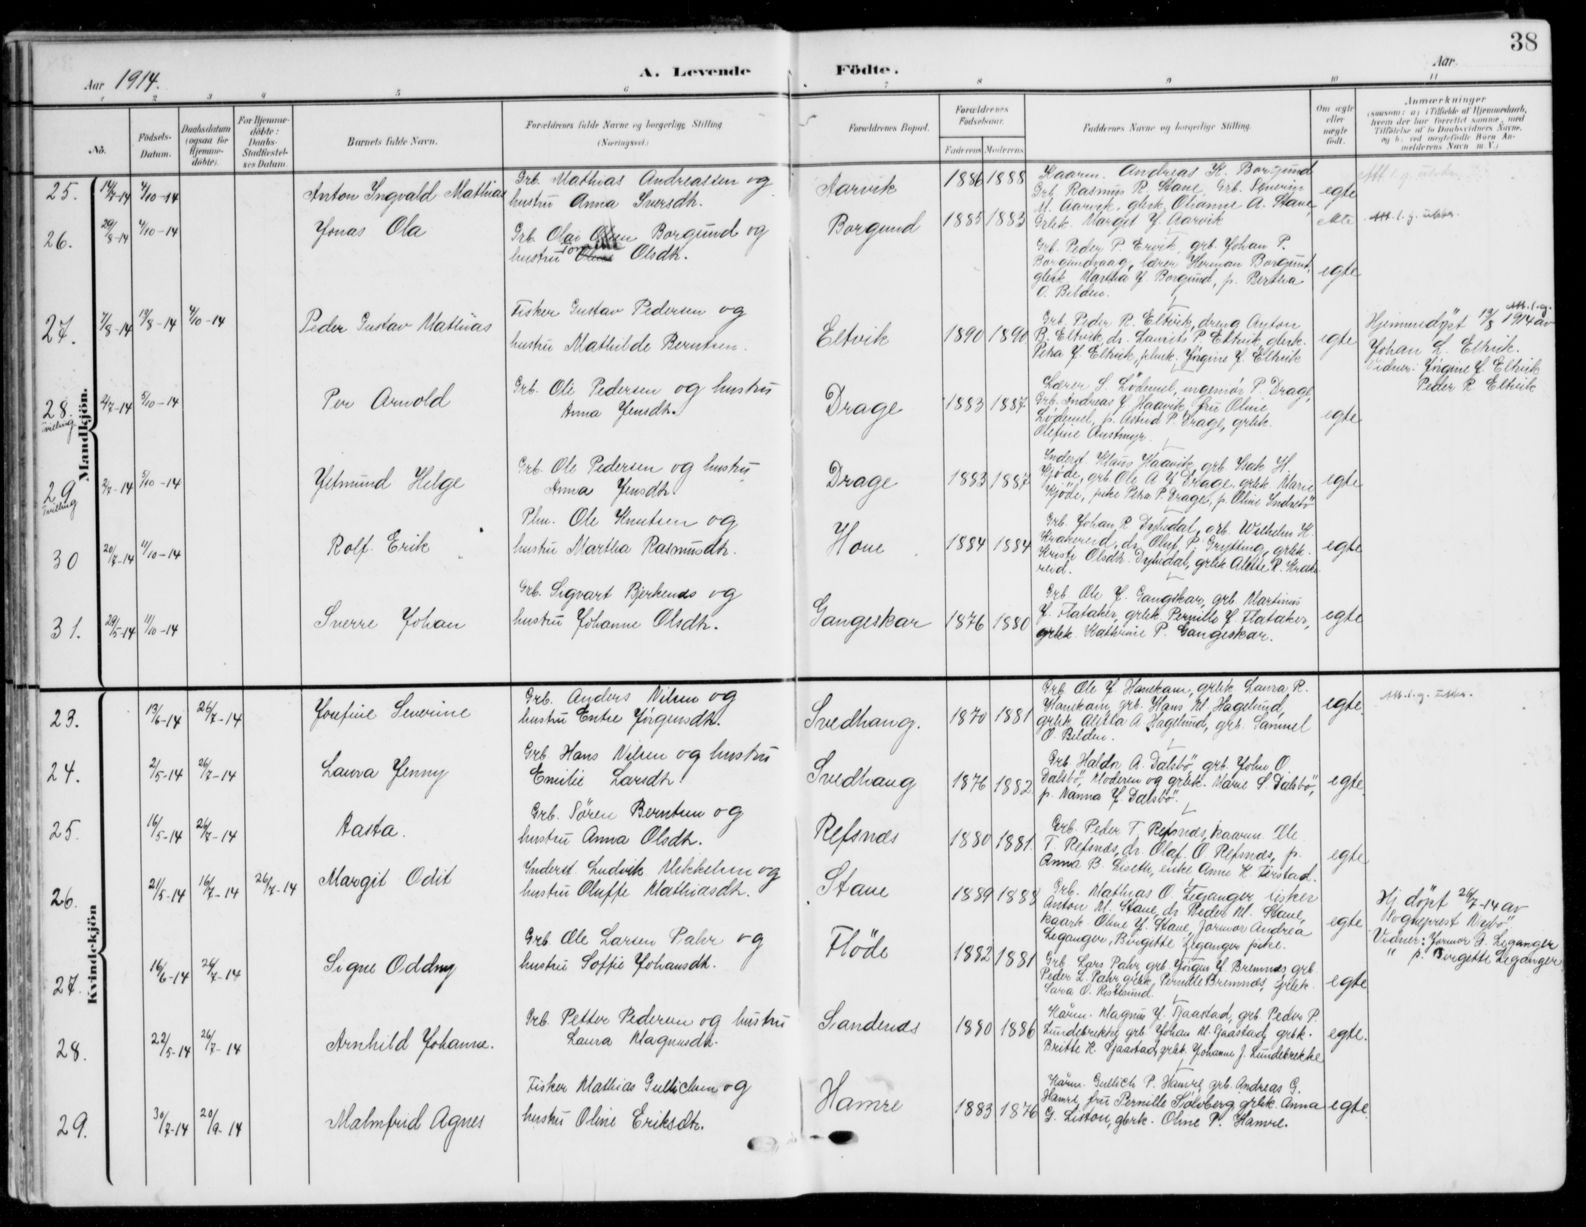 38
Aar 1914.
A. Levende Födte.
Aar.
1 2 3 4 5 6 7 8 9 10 11
No.
Födsels-Datum.
Daabsdatum (ogsaa for Hjemme-döbte).
For Hjemme-döbte: Daabs-Stadfæstel-ses Datum.
Barnets fulde Navn.
Forældrenes fulde Navne og borgerlige Stilling
(Næringsvei.)
Forældrenes Bopæl.
Forældrenes Födselsaar.
Faderens Moderens
Faddernes Navne og borgerlige Stilling.
Om ægte eller uægte födt.
Anmærkninger
Mandkjön.
25. 14/7-14 4/10-14 Anton Ingvald Mathias
Grb. Mathias Andreassen og
hustru Anna Iversdtr.
Aarvik 1886 1888
Kaarm. Andreas K. Borgund
Grb. Rasmus R. Stave, Grb. Severin
M. Aarvik, glerk. Olianne A. Stave,
Grlek. Margit J. Aarvik
egte
26. 29/8-14 4/10-14 Jonas Ola
Grb. Olai Olsen Borgund og
hustru Olsdtr.
Borgund 1885 1883
Grb. Peder P. Ervik, grb. Johan P.
Borgundvaag, lærer Herman Borgund,
glerk. Martha J. Borgund, p. Bertha
O. Belden.
egte
27. 7/8-14 19/8-14 4/10-14 Peder Gustav Mathias
Fisker Gustav Pedersen og
hustru Mathilde Berntsen.
Eltvik 1890 1890
Grb. Peder R. Eltvik, dreng Anton
R. Eltvik, dr. Laurits P. Eltvik, glerk.
Petra J. Eltvik, Jörgine J. Eltvik
egte
Hjemmedöpt 19/8 1914 av
Johan L. Eltvik.
Vidner: Jörgine J. Eltvik
Peder R. Eltvik
28. Tvilling 2/7-14 5/10-14 Per Arnold
Grb. Ole Pedersen og hustru
Anna Jensdtr.
Drage 1883 1887
Lærer S. Lödemel, ingeniör P. Drage,
Grb. Andreas J. Haavik, fru Oline
Lödemel, p. Astrid P. Drage, grlek.
Olefine Austmyr.
egte
29 Tvilling 2/7-14 5/10-14 Jetmund Helge
Grb. Ole Pedersen og hustru
Anna Jensdtr.
Drage 1883 1887
Inderst Klaus Haavik, grb. Isak H.
Kjöde, grb. Ole A. J. Drage, grlek. Marie
Kjöde, pike Petra P. Drage, p. Oline Indrebö
egte
30 20/7-14 11/10-14 Rolf Erik
Plm. Ole Knutsen og
hustru Martha Rasmusdtr.
Hove 1884 1884
Grb. Johan R. Dyhidal, grb. Wilhelm H.
Krakereid, dr. Oluf P. Grytting, grlek.
Kriste Olsdtr. Dyhidal, grlek Alette R. Krake
reid.
egte
31. 29/5-14 11/10-14 Sverre Johan
Grb. Sigvart Bjerkenes og
hustru Johanne Olsdtr.
Gangeskar 1876 1880
Grb. Ole J. Gangeskar, grb. Martinus
J. Flataker, grlek Pernille J. Flataker,
grlek Kathrine P. Gangeskar.
egte
Kvindekjön
23. 13/6-14 26/7-14 Josefine Severine
Grb. Anders Nilsen og
hustru Entse Jörgensdtr.
Svedhaug. 1870 1881
Grb. Ole J. Hanekam, grlek Laura R.
Hanekam, grb. Hans M. Hagelund,
grlek Aletta A. Hagelund, grb. Samuel
O. Belden.
egte.
24. 2/5-14 26/7-14 Laura Jenny
Grb. Hans Nilsen og hustru
Emilie Larsdtr.
Svedhaug 1876 1882
Grb. Haldor A. Dalsbö, grb. John O.
Dalsbö, Moderen og grlek. Marie S. Dalsbö,
p. Nanna J. Dalsbö.
egte.
25. 16/5-14 26/7-14 Aasta.
Grb. Sören Berntsen og
hustru Anna Olsdtr.
Refsnes 1880 1881
Grb. Peder T. Refsnes, kaarm. Ole
T. Refsnes, dr. Olaf O. Refsnes, p.
Anna B. Liseth, enke Anne K. Årstad.
egte
26. 21/5-14 16/7-14 26/7-14 Margit Odit
Inderst Ludvik Mikkelsen og
hustru Oluffe Mathiasdtr.
Stave 1889 1888
Grb. Mathias O. Leganger, fisker
Anton M. Stave, dr. Peder M. Stave,
kaark. Oline J. Stave, Jormor Andrea
Leganger, Birgitte Leganger pike.
egte
Hj. döpt 26/7-14 av
Sogneprest Nybö
Vidner: Jormor J. Leganger
" p. Borgette Leganger
27. 16/6-14 26/7-14 Signe Oddny
Grb. Ole Larsen Pahr og
hustru Soffie Johansdtr.
Flöde 1882 1881
Grb. Lars Pahr, grb. Jörgen J. Bremnes, grb.
Peder L. Pahr, grlek. Pernille Bremnes, grlek.
Sara O. Ristesund.
egte
28. 22/5-14 26/7-14 Arnhild Johanne.
Grb. Petter Pedersen og hustru
Laura Magnusdtr.
Sandenes 1880 1886
Kårm. Magnus J. Tjaastad, grb. Peder P.
Lundebrekke, grb. Johan M. Tjaastad, grlek.
Britte K. Tjaastad, grlek. Johanne J. Lundebrekke
egte.
29. 30/7-14 20/9-14 Malmfrid Agnes
Fisker Mathias Gullichsen og
hustru Oline Eriksdtr.
Hamre 1883 1876
Kårm. Gullich P. Hamre, grb. Andreas G.
Hamre, fru Pernille Solvberg, grlek. Anna
G. Liston, glerk. Oline P. Hamre.
egte.